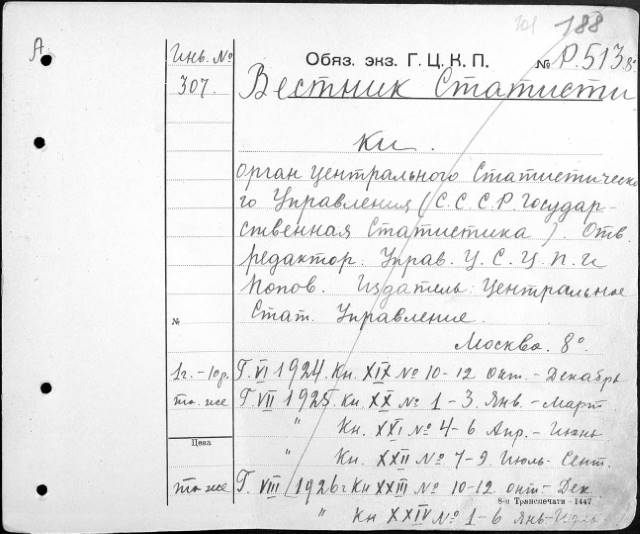 101 188
А
Инв. №
307.
Обяз. экз. Г. Ц. К. П. № Р.513 8°
Вестник Статисти
ки.
орган центрального Статистическо
го Управления (С.С.С.Р. Государ-
ственная Статистика). Отв.
редактор: Управ. Ц.С.У. П.И
Попов. Издатель: Центральное
№ Стат. Управление.
Москва. 8°.
1г.-10р. Г. VI 1924. Кн. XIX № 10-12 Окт. - Декабрь
то же Г. VII 1925 Кн XX № 1-3. Янв. - Март
" Кн. XXI № 4-6 Апр. - Июнь
Цена
" Кн. XXII № 7-9. Июль - Сент.
то же Г. VIII 1926г Кн XXIII № 10-12 окт. - Дек
8-я Транспечати - 1447
" Кн XXIV № 1-6 Янв-